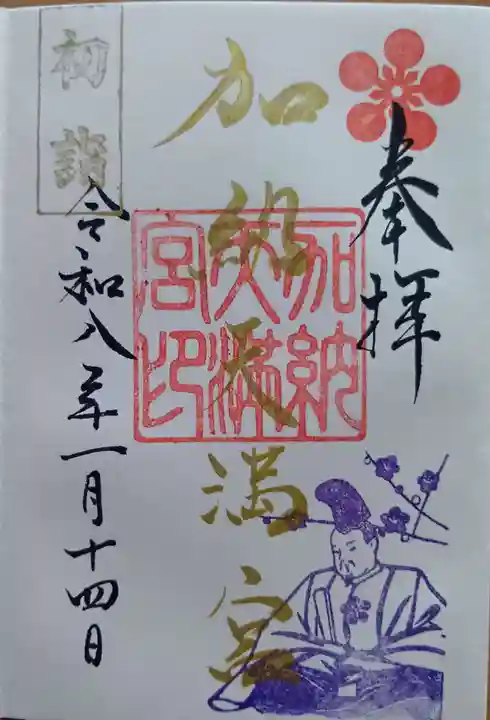 奉拝
加納天満宮
加納天満宮印
初詣
令和八年一月十四日